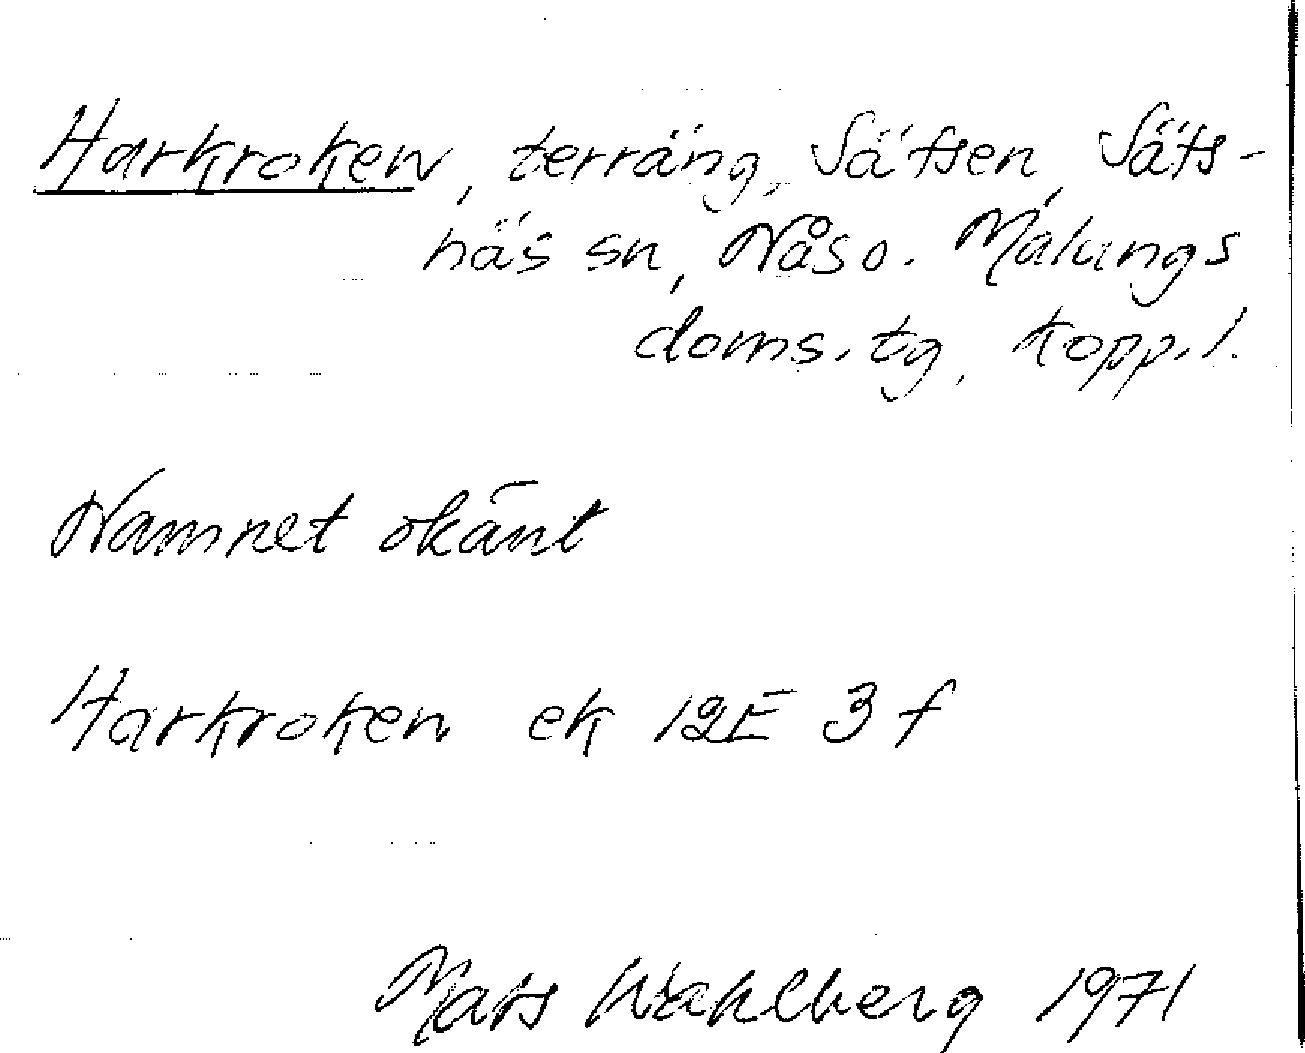 Harkroken, terräng, Sätsen, Säfs-
näs sn, Nås o. Malungs
doms. tg, Kopp. l.
Namnet okänt
Harkroken ek 12E 3f
Mats Wahlberg 1971